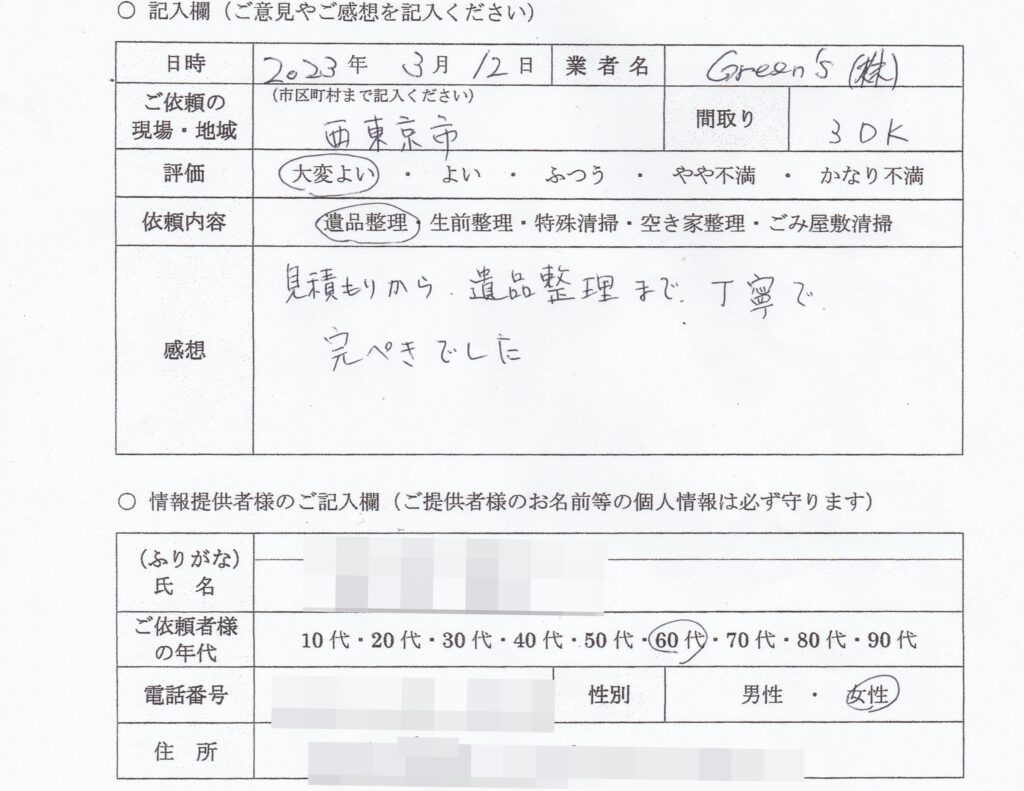 ○ 記入欄（ご意見やご感想を記入ください）
日時 2023年 3月 12日 業者名 Green's (株)
ご依頼の現場・地域 （市区町村まで記入ください） 西東京市 間取り 3DK
評価 大変よい ・ よい ・ ふつう ・ やや不満 ・ かなり不満
依頼内容 遺品整理・生前整理・特殊清掃・空き家整理・ごみ屋敷清掃
感想 見積もりから、遺品整理まで、丁寧で
完ぺきでした
○ 情報提供者様のご記入欄（ご提供者様のお名前等の個人情報は必ず守ります）
（ふりがな）
氏 名
ご依頼者様の年代 10代・20代・30代・40代・50代・60代・70代・80代・90代
電話番号 性別 男性 ・ 女性
住 所